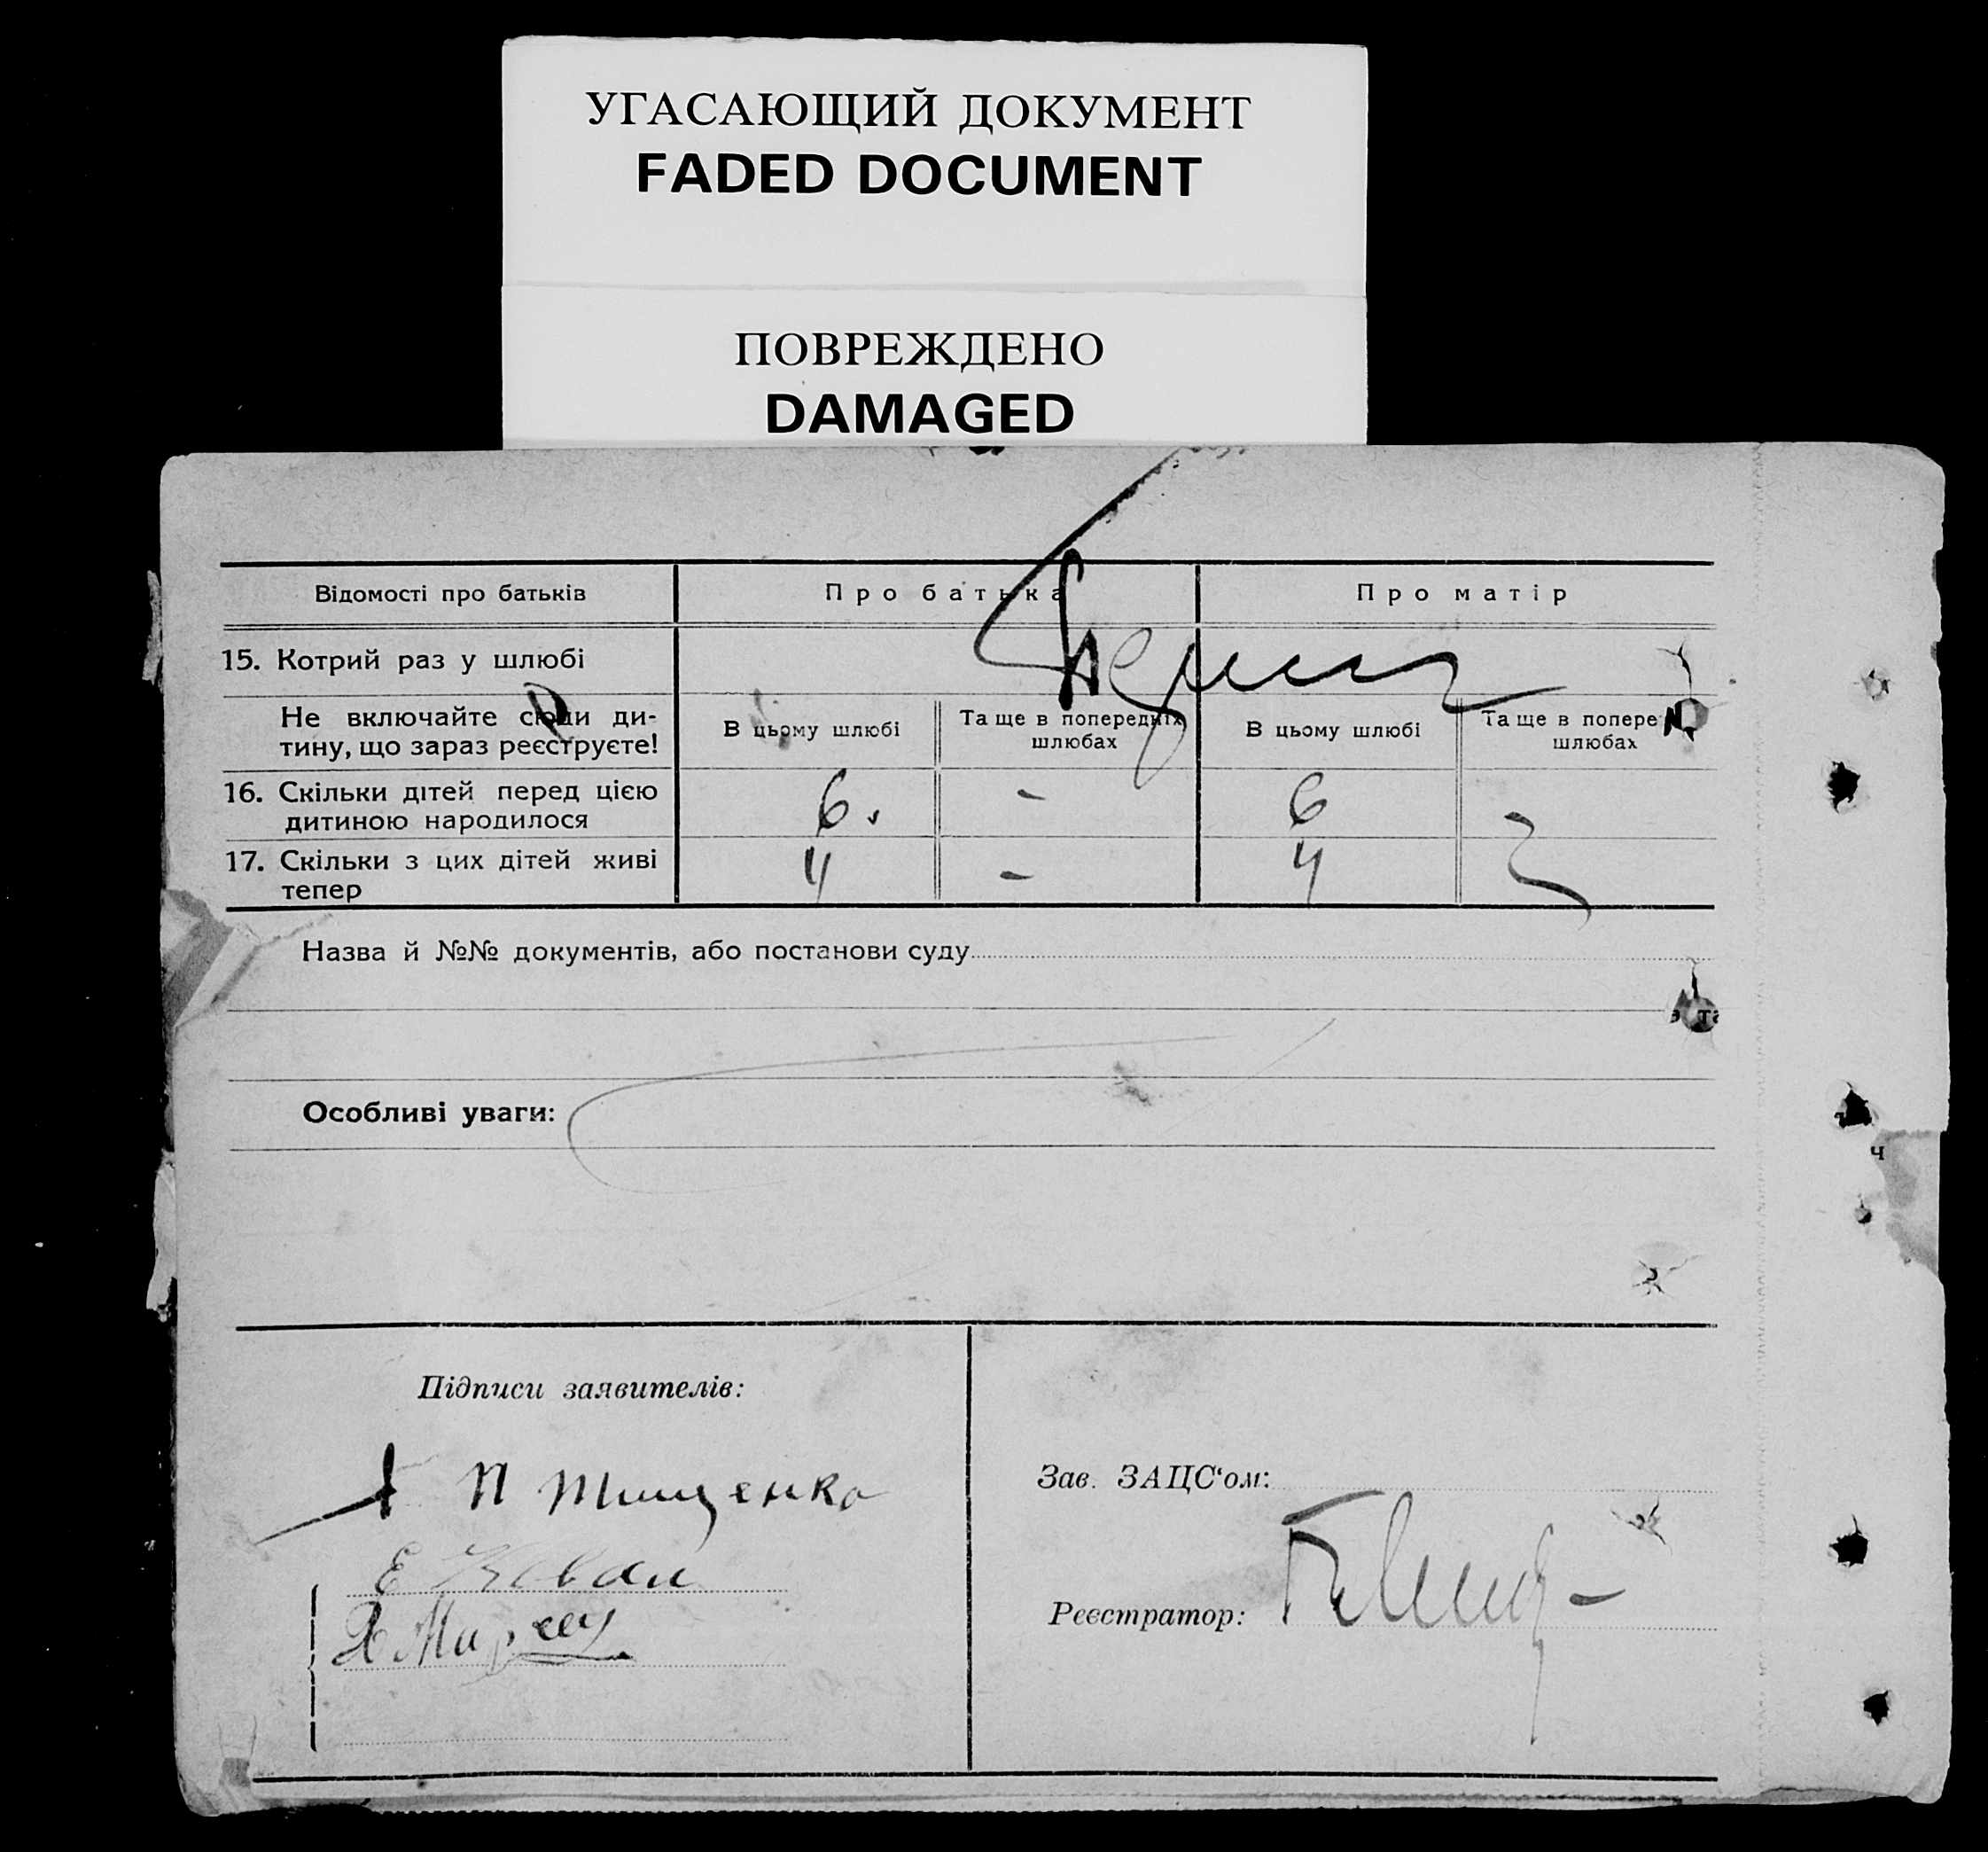 УГАСАЮЩИЙ ДОКУМЕНТ
FADED DOCUMENT
ПОВРЕЖДЕНО
DAMAGED
Відомості про батьків
Про батька
Про матір
15. Котрий раз у шлюбі
Не включайте сюди ди-
тину, що зараз реєструєте!
В цьому шлюбі
Та ще в попередніх
шлюбах
В цьому шлюбі
Та ще в попере
шлюбах
16. Скільки дітей перед цією
дитиною народилося
6.
-
6
17. Скільки з цих дітей живі
тепер
4
-
4
Назва й №№ документів, або постанови суду
Особливі уваги:
Підписи заявителів:
П Тищенко
Е Коваль
Зав. ЗАЦС'ом:
Реєстратор: